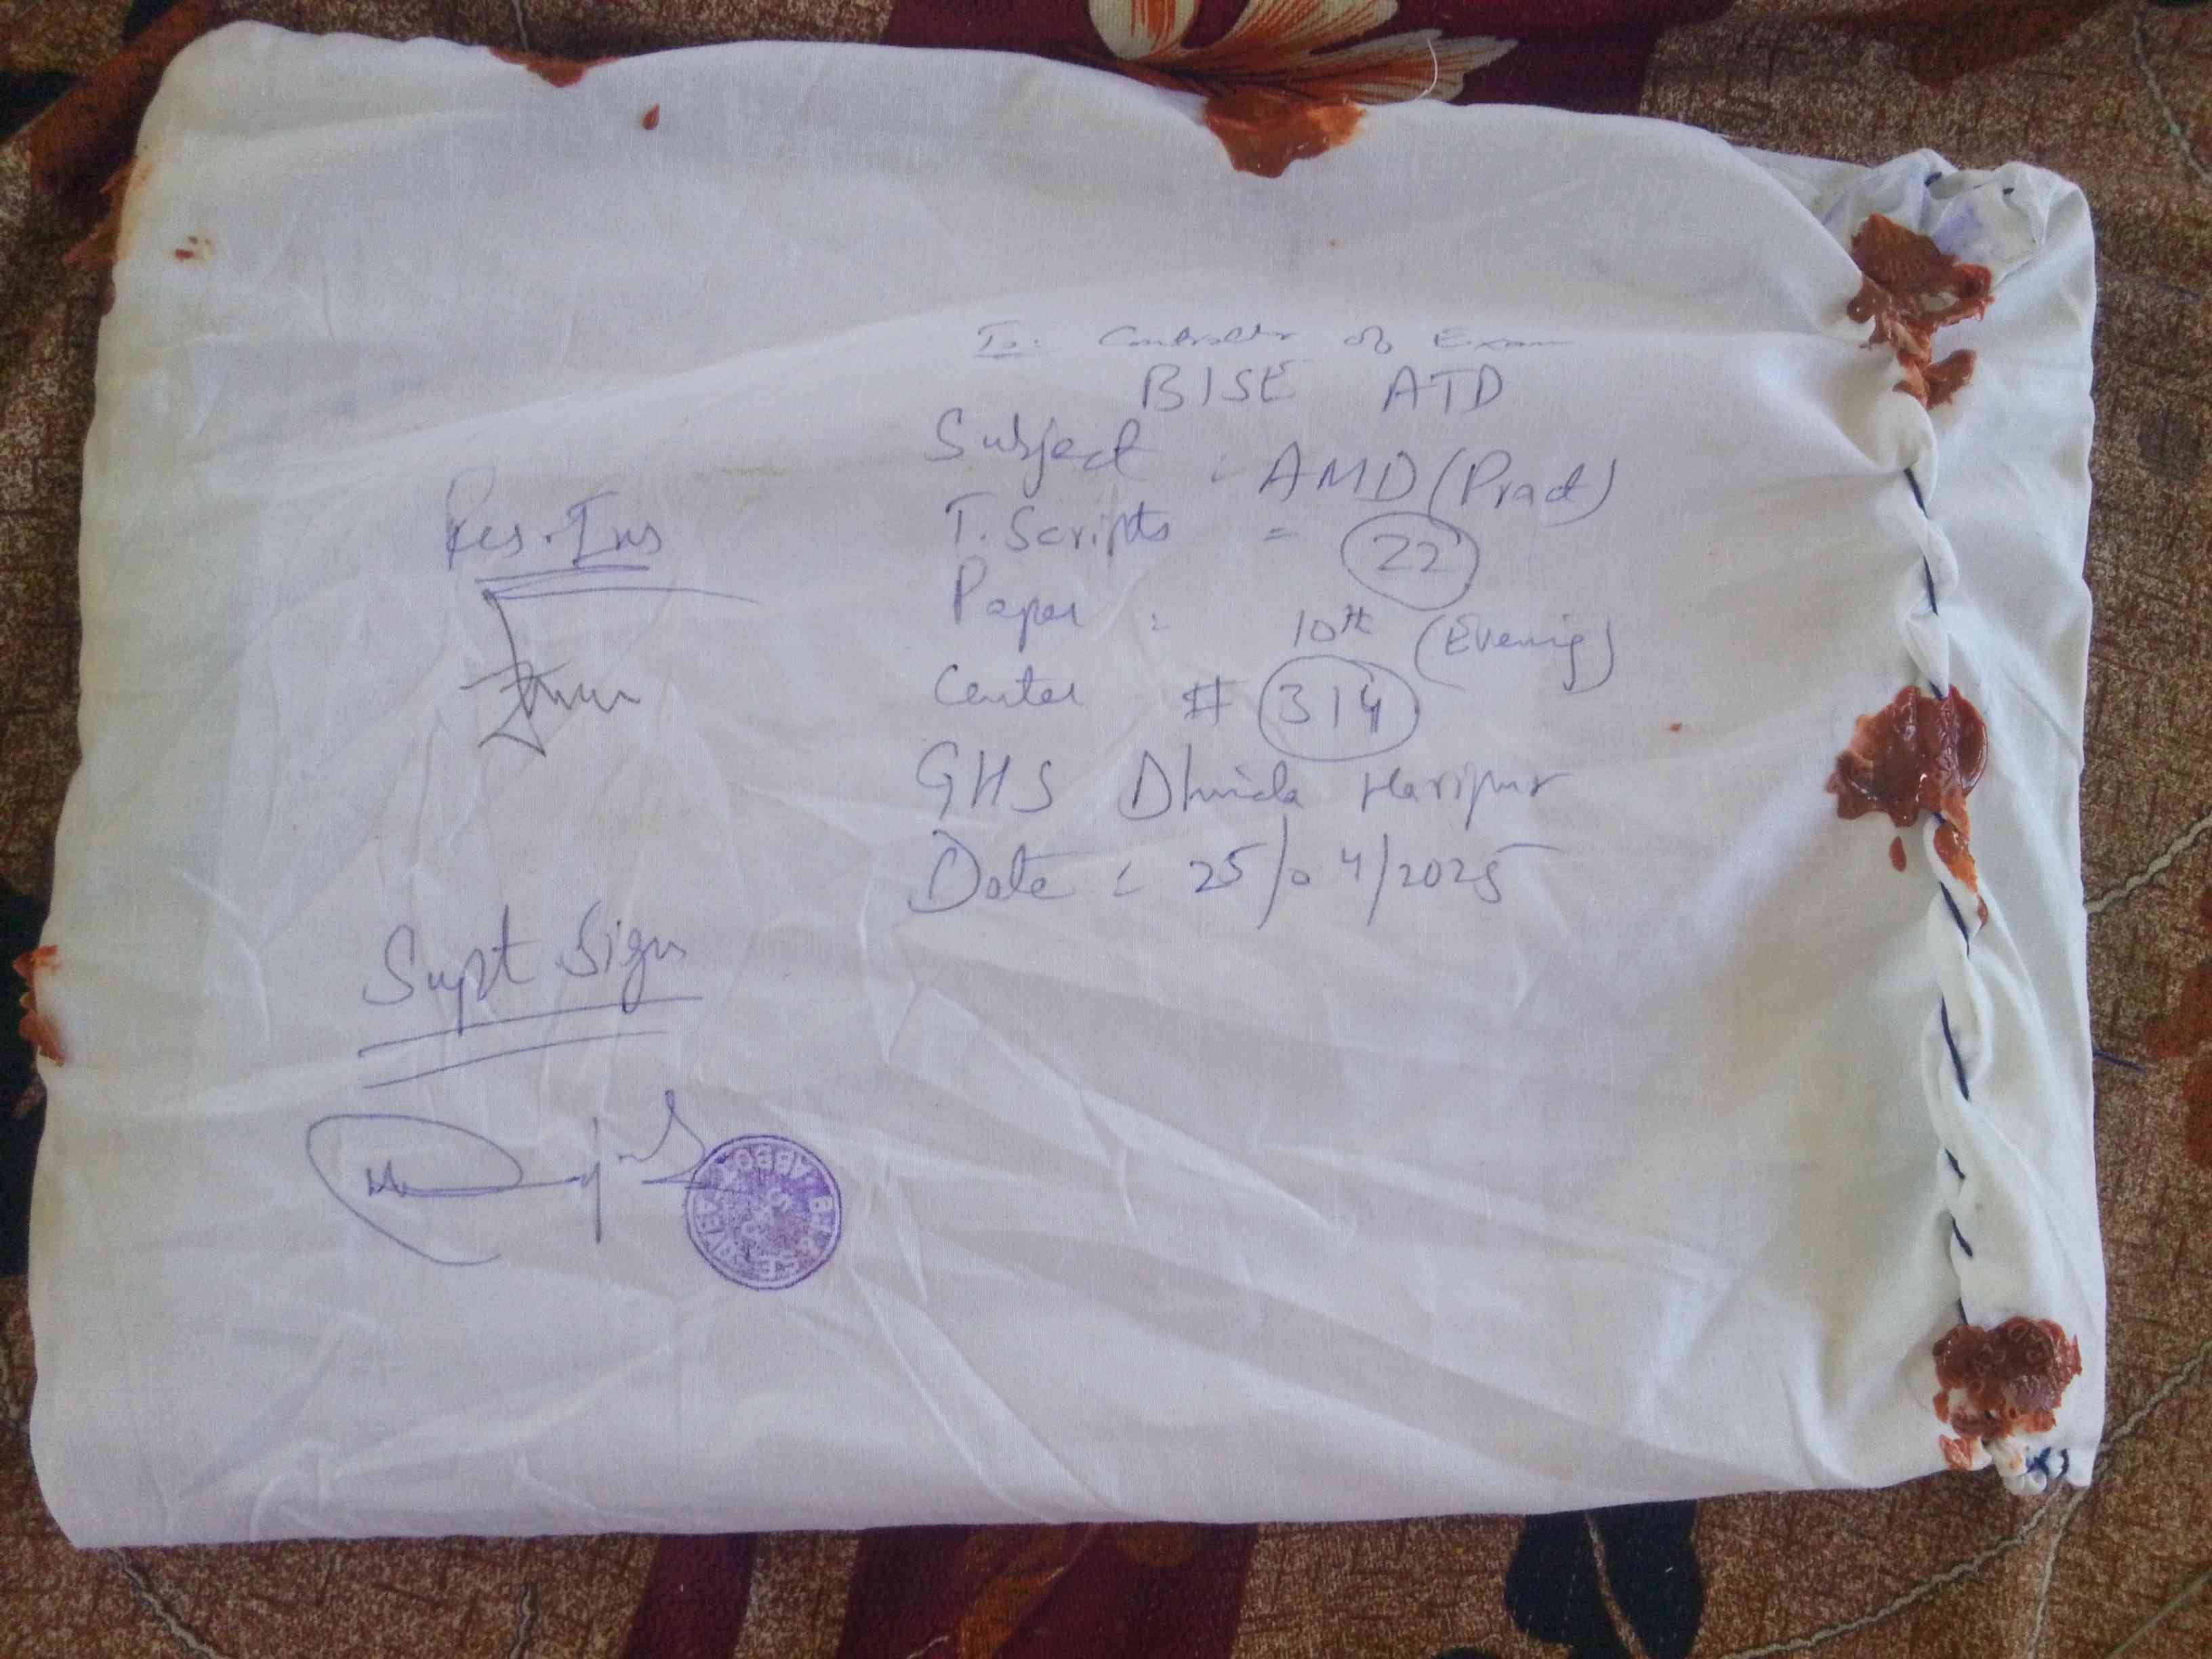 To: Controller of Exam
BISE ATD
Subject : AMD (Pract)
T. Scripts = 22
Paper : 10th (Evening)
Center # 314
GHS Dhinda Haripur
Date : 25/04/2025
Res. Ins
Supt Sign